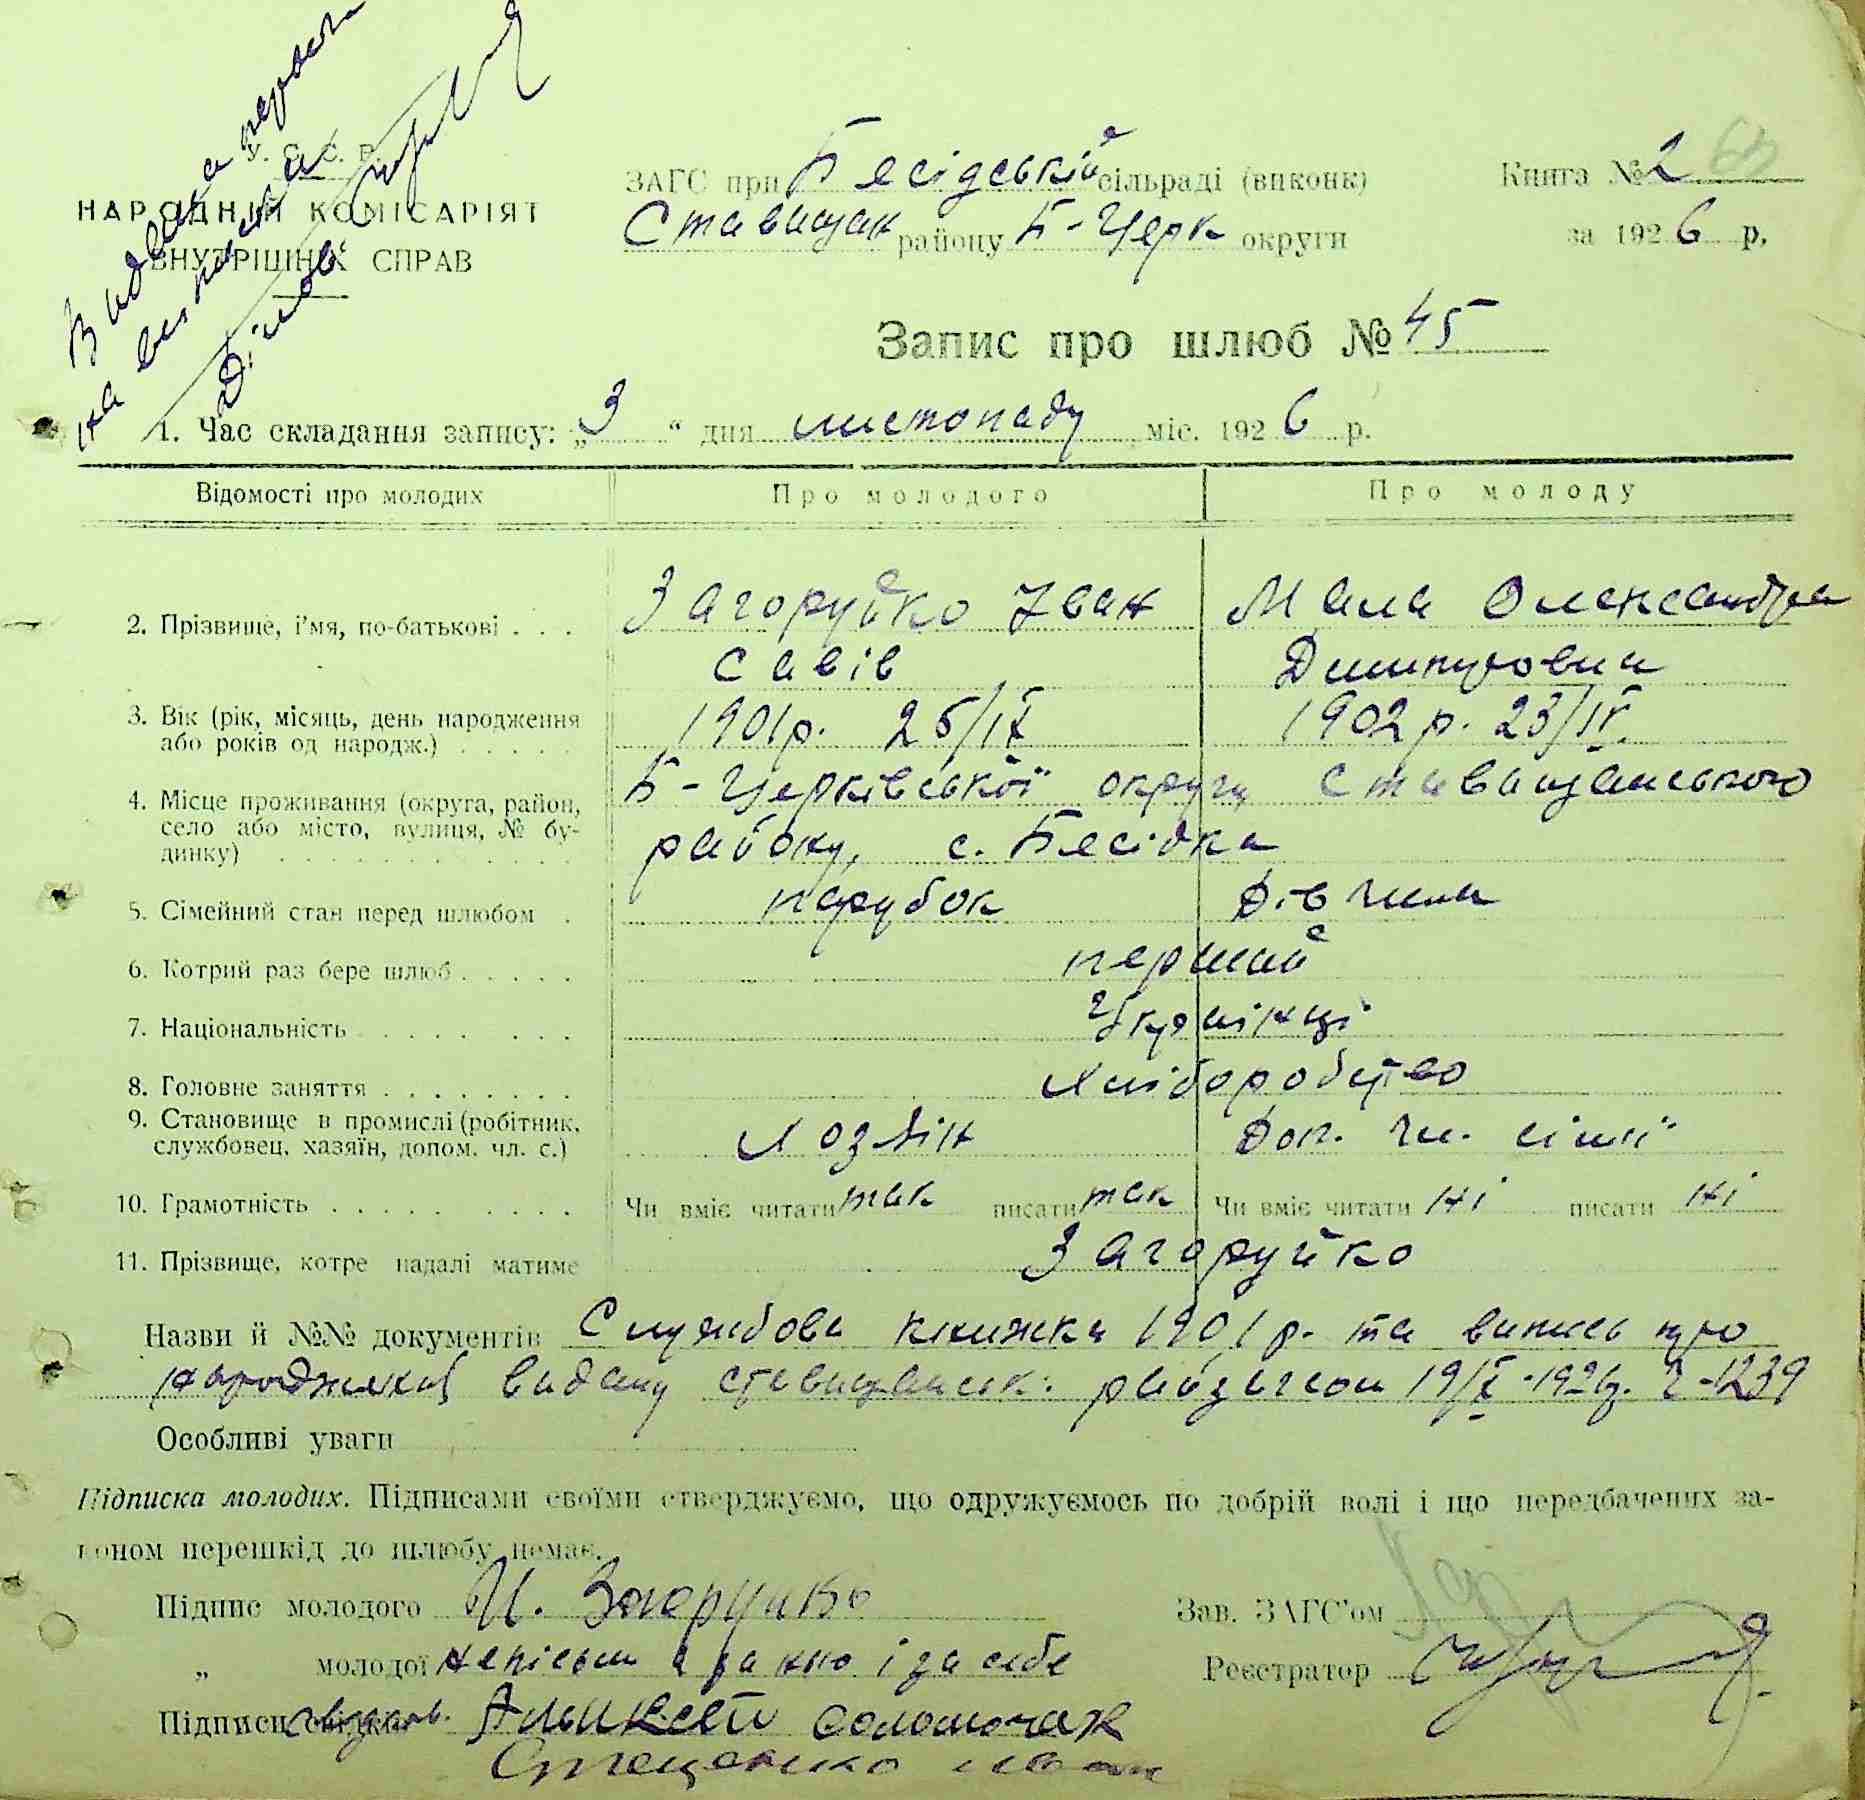 Видвена
на
Діловій
У. С. С. Р.
НАРОДНІЙ КОМІСАРІЯТ
ВНУТРІШНІХ СПРАВ
ЗАГС при Бесідській сільраді (виконк)
Ставищан району Б-Церк округи
Книга № 2
за 1926 р.
Запис про шлюб № 45
1. Час складання запису: „3“ дня листопаду міс. 1926 р.
Відомості про молодих Про молодого Про молоду
2. Прізвище, і'мя, по-батькові . . . Загоруйко Іван Мала Олександра
Савів Димитровна
3. Вік (рік, місяць, день народження 1901р. 25/IX 1902 р. 23/IV.
або років од народж.)
4. Місце проживання (округа, район, Б-Церківської округи Ставищанського
село або місто, вулиця, № бу- району, с. Бесідка
динку)
5. Сімейний стан перед шлюбом . парубок дівчина
6. Котрий раз бере шлюб перший
7. Національність Українці
8. Головне заняття Хліборобство
9. Становище в промислі (робітник, Хозяїн Доп. чл. сімї
службовец, хазяїн, допом. чл. с.)
10. Грамотність Чи вміє читати так писати так Чи вміє читати ні писати ні
11. Прізвище, котре надалі матиме Загоруйко
Назви й №№ документів Службова книжка 1901 р. та випись про
народження видану ставищанськ. райзагсом 19/X-1926р. ч-1239
Особливі уваги
Підписка молодих. Підписами своїми стверджуємо, що одружуємось по добрій волі і що передбачених за-
коном перешкід до шлюбу немає.
Підпис молодого И. Загруйко Зав. ЗАГС'ом
„ молодої неписьм а за ню і за себе Реєстратор
Підписи свідків Алыксей соломочак
Стеценко иван